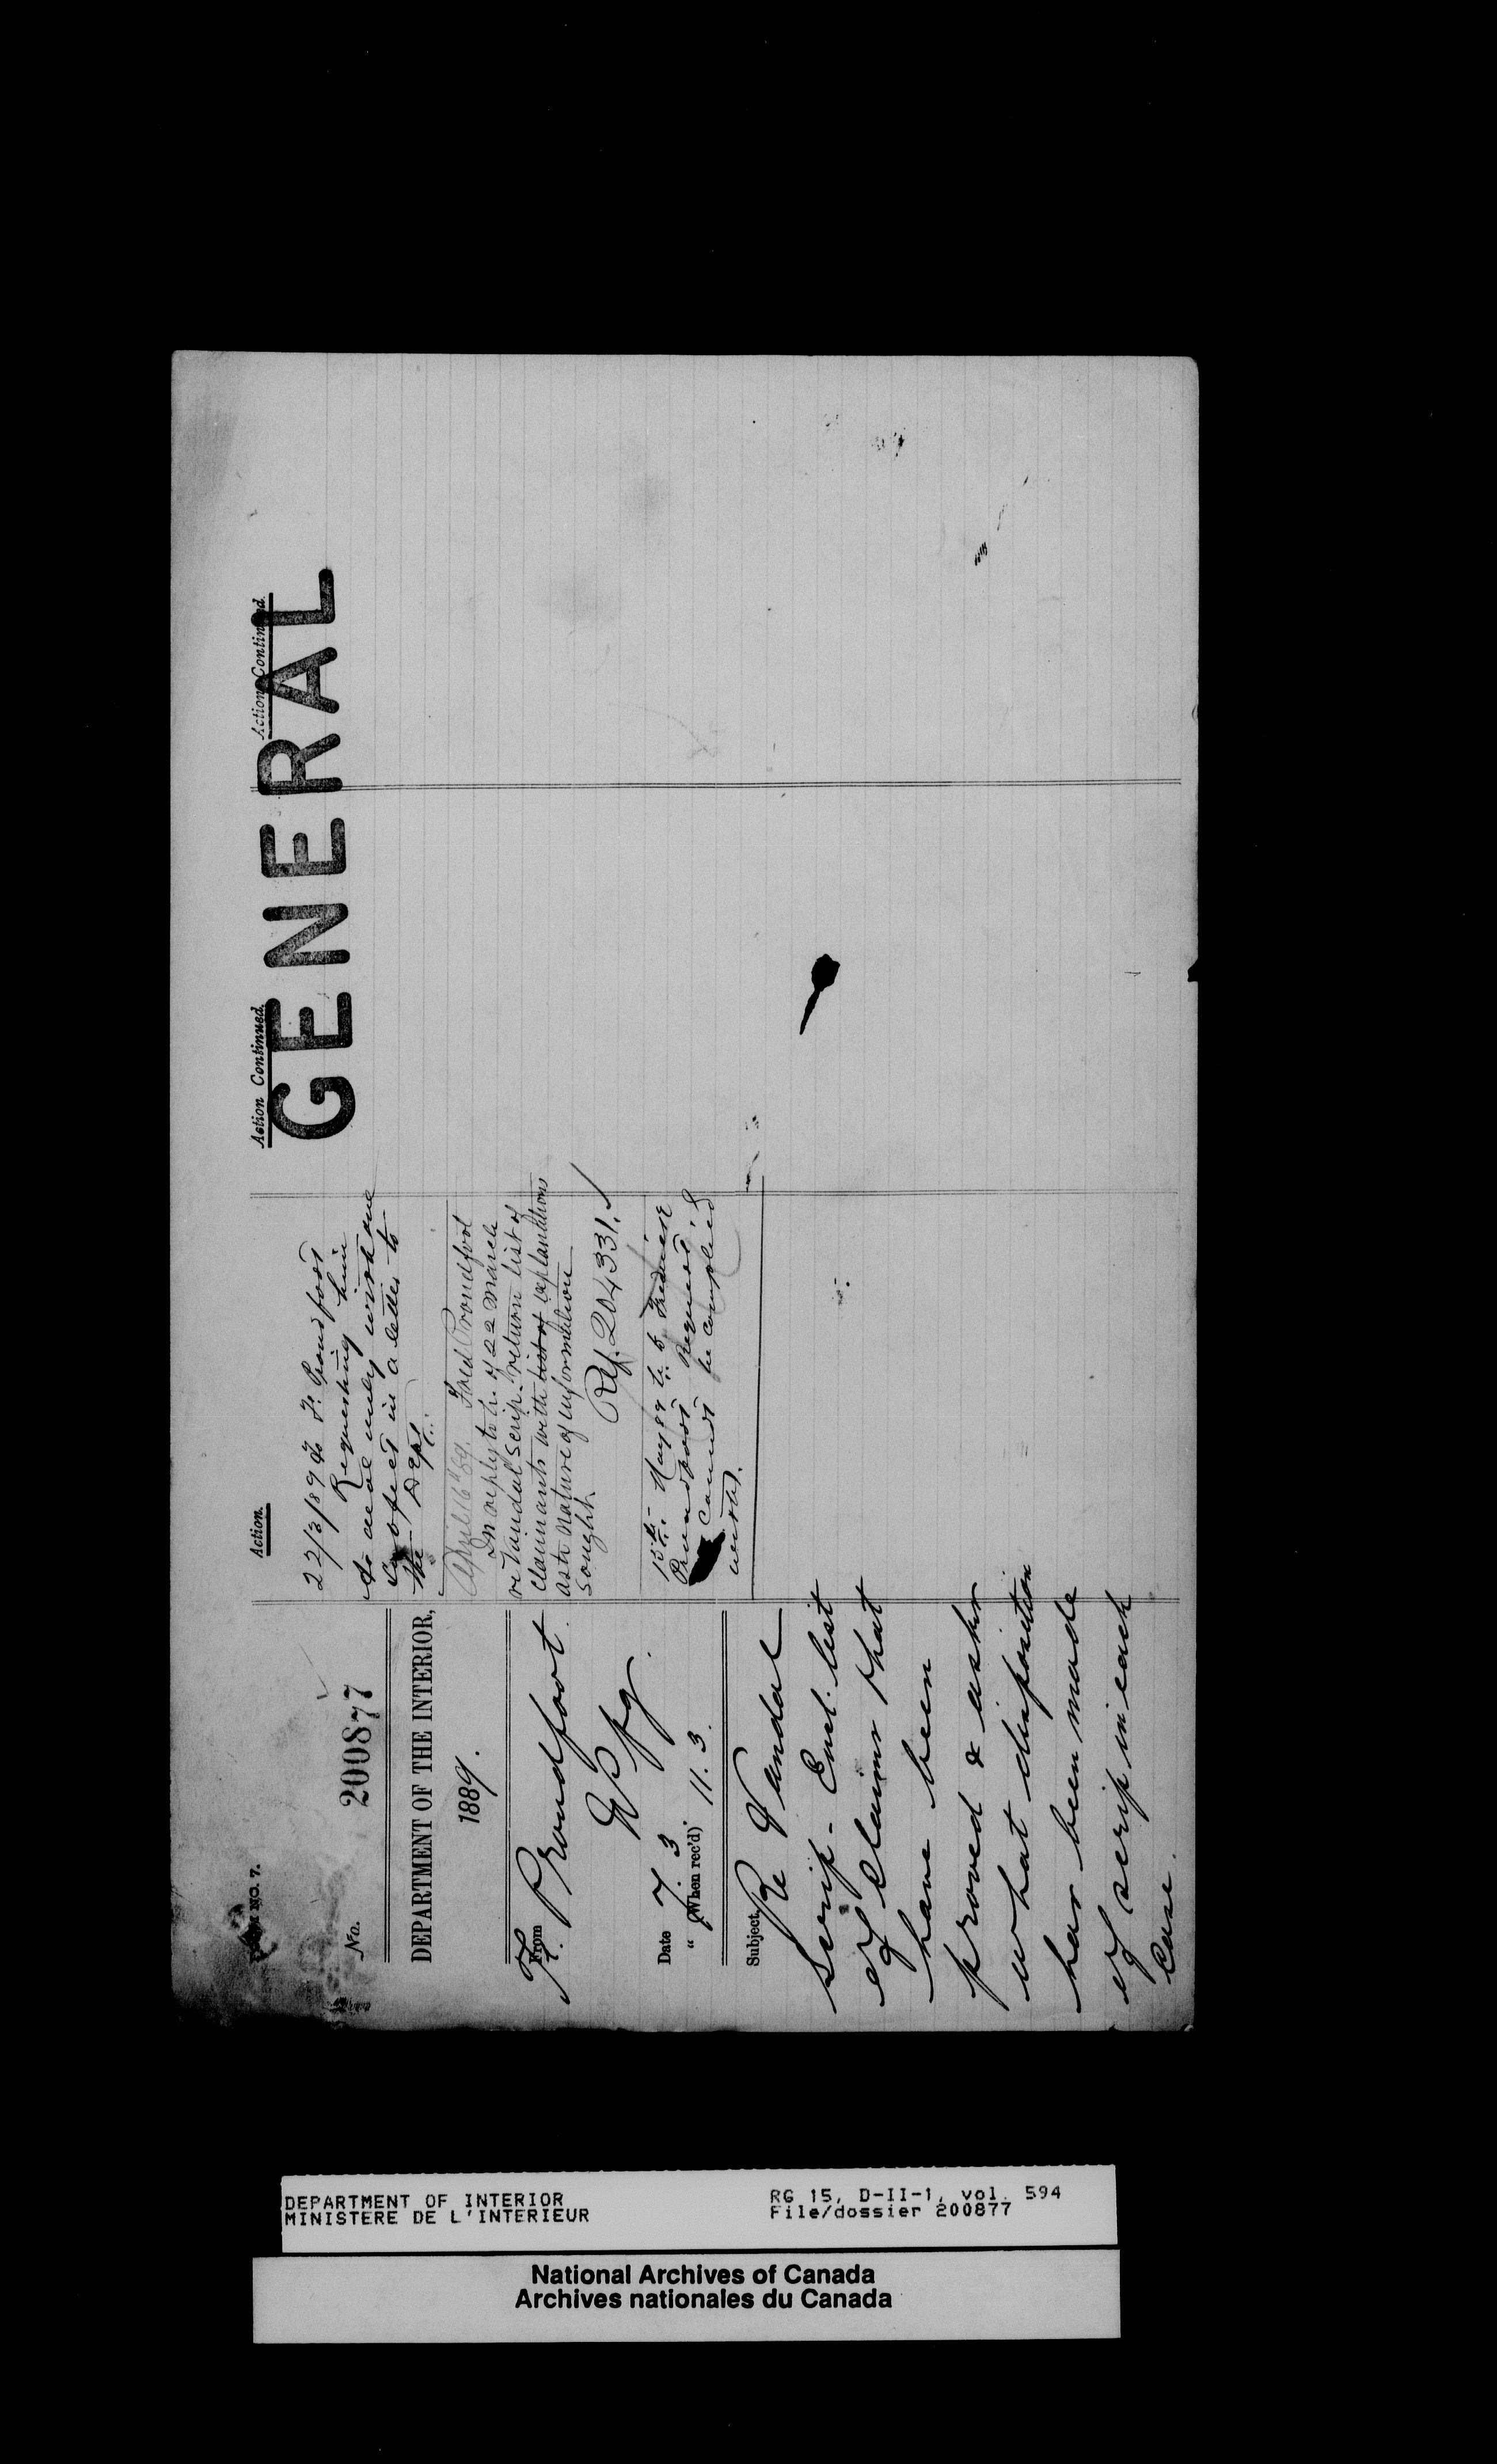 FORM NO. 7.
No. 200877
DEPARTMENT OF THE INTERIOR,
1889.
From
F. Proudfoot
Wpg.
Date 7. 3
" (When rec'd) 11. 3.
Subject,
Re Vandal
scrip - Encl. list
of claims that
have been
proved & asks
what disposition
has been made
of scrip in each
case.
Action.
22/3/89 to F. Proudfoot
Requesting him
to deal only with one
subject in a letter to
the Dept.
April 16" 89. Fred Proudfoot
In reply to lr. of 22 March
re Vandal scrip. return list of
claimants with list of explanations
as to nature of information
sought.
Ref. 204331.
15th May 89 to Frederick
Proudfoot Request
cannot be complied
with.
Action Continued.
Action Continued.
GENERAL
DEPARTMENT OF INTERIOR
MINISTERE DE L'INTERIEUR
RG 15, D-II-1, vol. 594
File/dossier 200877
National Archives of Canada
Archives nationales du Canada